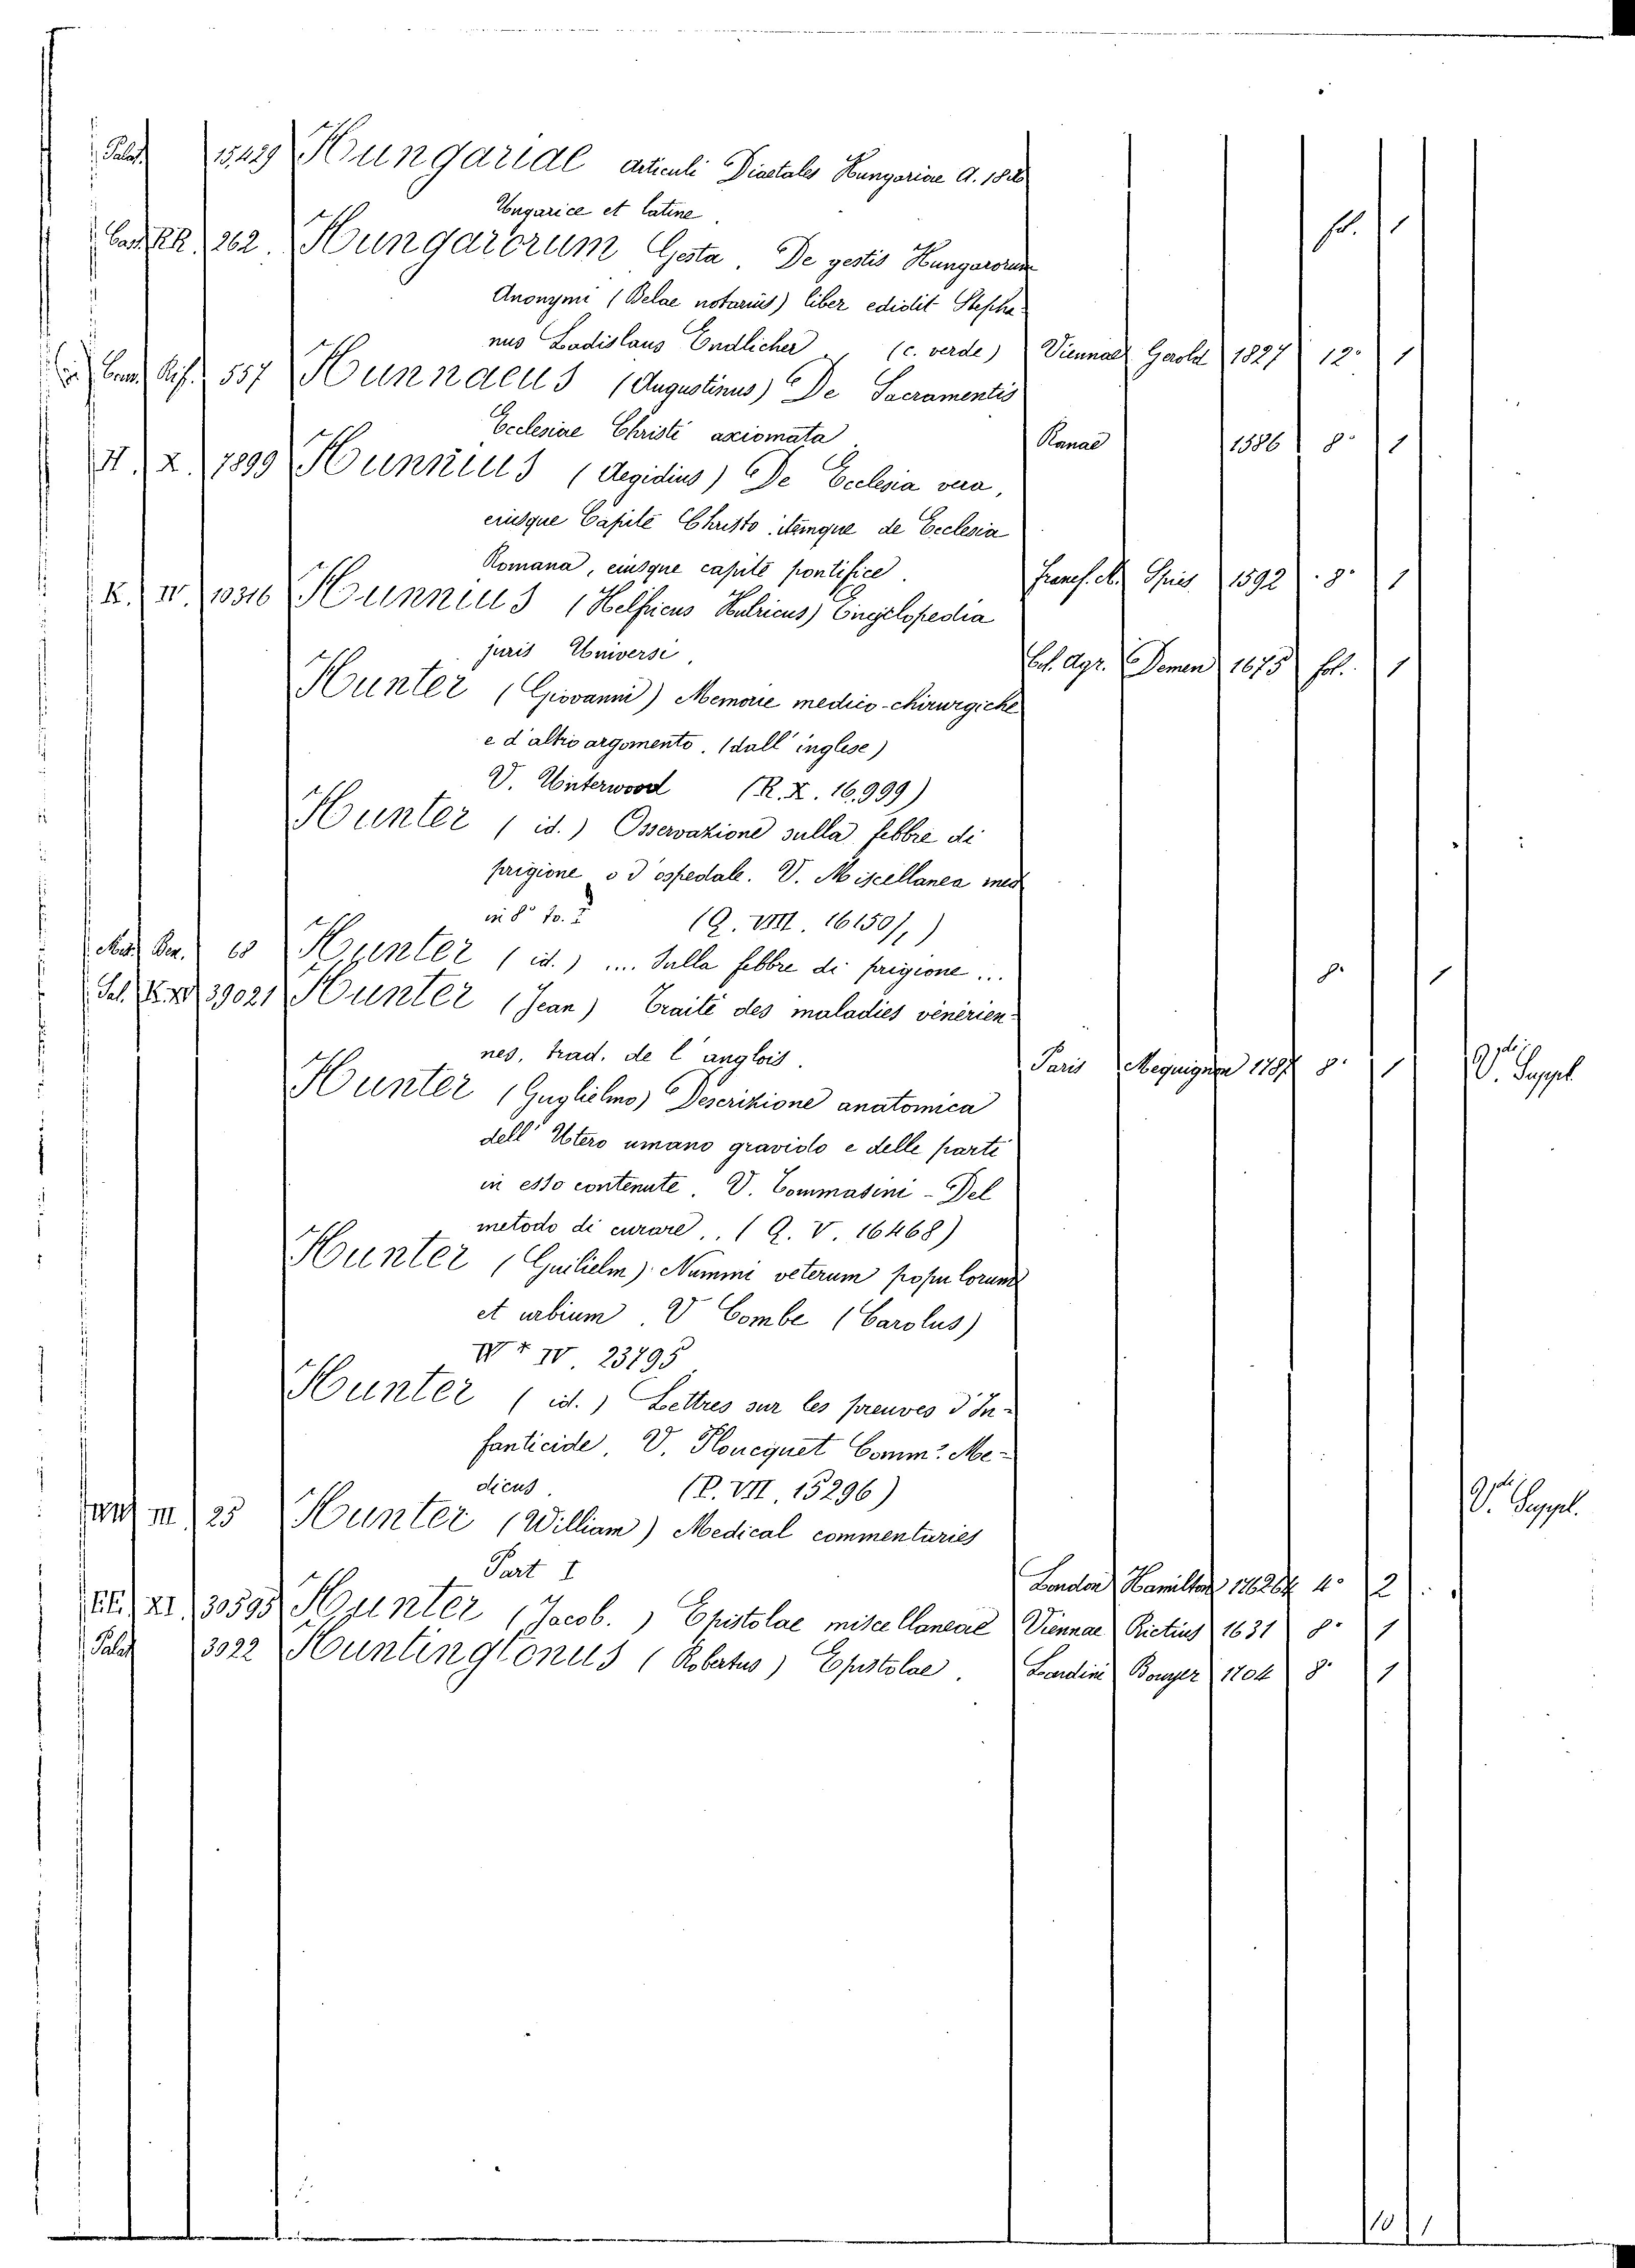 Palat. 15,429 Hungariae articuli Diaetales Hungariae A.
Ungarice et latine.
fol. 1
262. Hungarorum Gesta. De gestis Hungarorum
Anonymi (Belae notarius) liber edidit Stepha-
nus Ladislaus Endlicher (c. verde) Viennae Gerold 1827 12° 1
557 Hunnaeus (Augustinus) De Sacramentis
Ecclesiae Christi axiomata Hanae 1586 8° 1
H. X. 7899 Hunnius (Aegidius) De Ecclesia vera,
eiusque Capite Christo itemque de Ecclesia
Romana, eiusque capite pontifice. Spies 1592 8° 1
K. IV. 10316 Hunnius (Helfricus Hulricus) Encyclopedia
juris Universi. Col. Agr. Demen 1675 fol. 1
Hunter (Giovanni) Memorie medico-chirurgiche
e d'altro argomento. (dall'inglese)
V. Unterwood (R. X. 16,999)
Hunter (id.) Osservazione sulla febbre di
prigione o d'ospedale. V. Miscellanea med
in 8° to. I (Q. VIII. 16150/1)
Hunter (id.) .... Sulla febbre di prigione ...
8° 1
39021 Hunter (Jean) Traité des maladies vénérien-
nes, trad. de l'anglois. Paris Mequignon 1787 8° 1 V. Suppl
Hunter (Guglielmo) Descrizione anatomica
dell'Utero umano gravido e delle parti
in esso contenute. V. Tommasini - Del
metodo di curare.. (Q. V. 16468)
Hunter (Guilielm) Nummi veterum populorum
et urbium. V Combe (Carolus)
IV 23795
Hunter (id.) Lettres sur les preuves d'In-
fanticide. V. Ploucquet Comm: Me-
dicus. (P. VII. 15296)
III. 25 Hunter (William) Medical commentaries V. Suppl.
Part I London Hamilton 4° 2
XI. 30595 Hunter (Jacob.) Epistolae miscellaneae Viennae Rictius 1631 8° 1
Palat 3022 Huntingtonus (Robertus) Epistolae. Londini Bowyer 1704 8° 1
10 1